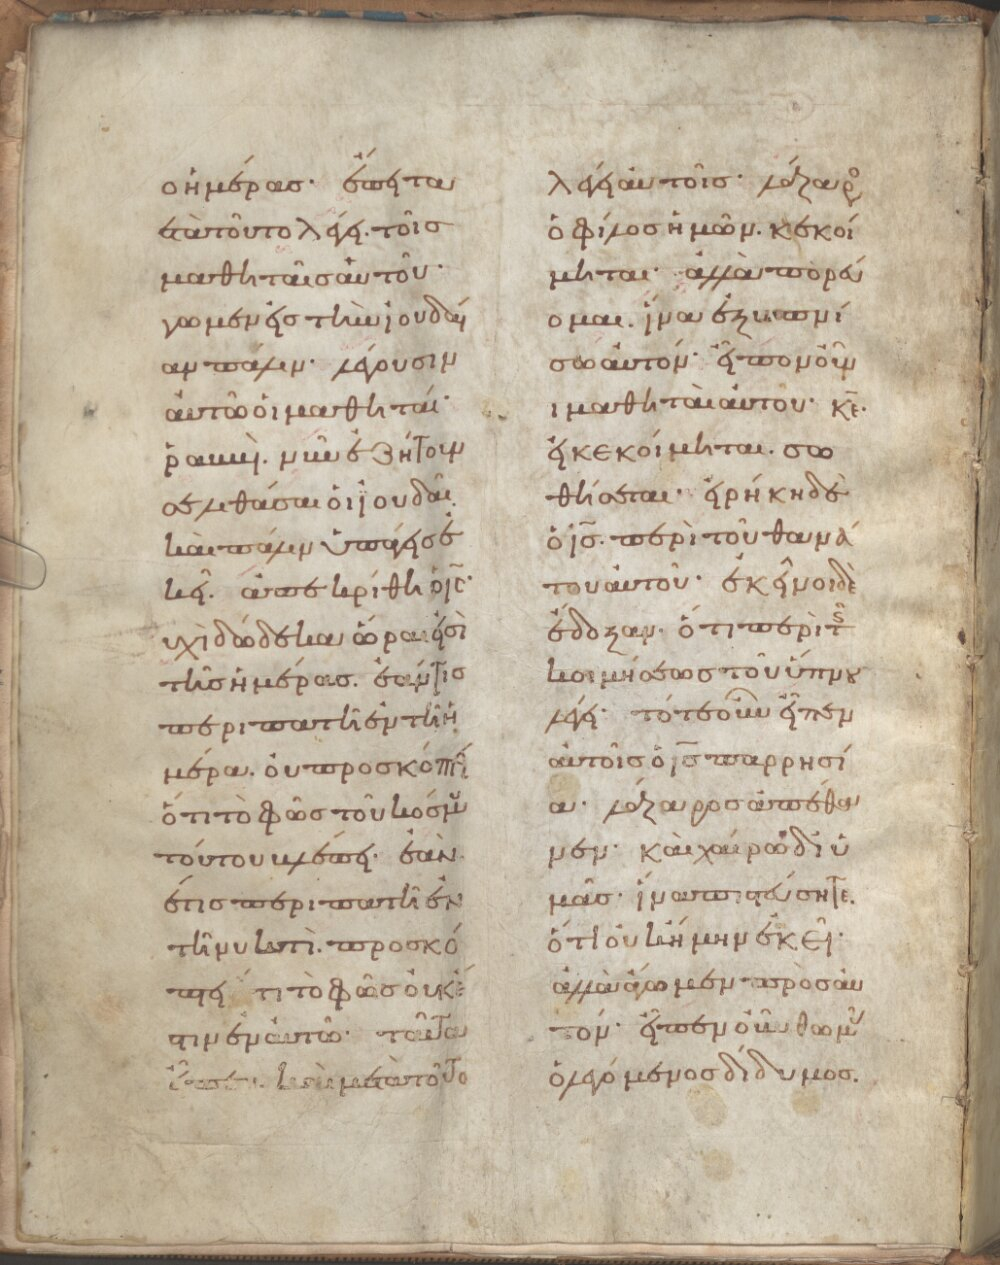 ο ἡμέρας· ἔπειτα
μετὰ τοῦτο λέγει τοῖς
μαθηταῖς αὐτοῦ·
γωμεν εἰς τὴν ἰουδαί
αν πάλιν· λέγουσιν
αὐτῶ οἱ μαθηταί·
ῥαββὶ. νῦν ἐζήτουν
σε λιθάσαι οἱ ἰουδαῖ
καὶ πάλιν ὑπάγεις ἐ
κεῖ. ἀπεκρίθη ὁ ις·
υχὶ δώδεκα ὧραι εἰσὶ
τῆς ἡμέρας. ἐάν τις
περιπατῆ ἐν τῆ ἡ
μέρα. οὐ προσκόπτει
ὅτι τὸ φῶς τοῦ κόσμου
τούτου βλέπει· ἐὰν
δέ τις περιπατῆ ἐν
τῆ νυκτὶ. προσκό
πτει τι τὸ φῶς οὐκ ἔ
στιν ἐν αὐτῶ· ταῦτα
εἶπεν. καὶ μετὰ τοῦτο
λέγει αὐτοῖς· λάζαρο
ὁ φίλος ἡμῶν. κεκοί
μηται· ἀλλὰ πορεύ
ομαι. ἵνα ἐξυπνί
σω αὐτόν· εἶπον οὖν
ι μαθηταὶ αὐτοῦ· κε·
εἰ κεκοίμηται. σω
θήσεται· εἰρήκει δὲ
ὁ ις. περὶ τοῦ θανά
του αὐτοῦ· ἐκεῖνοι δὲ
ἔδοξαν. ὅτι περὶ τῆς
κοιμήσεως τοῦ ὕπνου
λέγει· τότε οὖν εἶπεν
αὐτοῖς ὁ ις παρρησί
α· λάζαρος ἀπέθα
νεν· καὶ χαίρω δι ὑ
μᾶς· ἵνα πιστεύσητε.
ὅτι οὐκ ἤμην ἐκεῖ·
ἀλλὰ ἄγωμεν πρὸς αὐ
τόν· εἶπεν οὖν θωμᾶ
ὁ λεγόμενος δίδυμος.